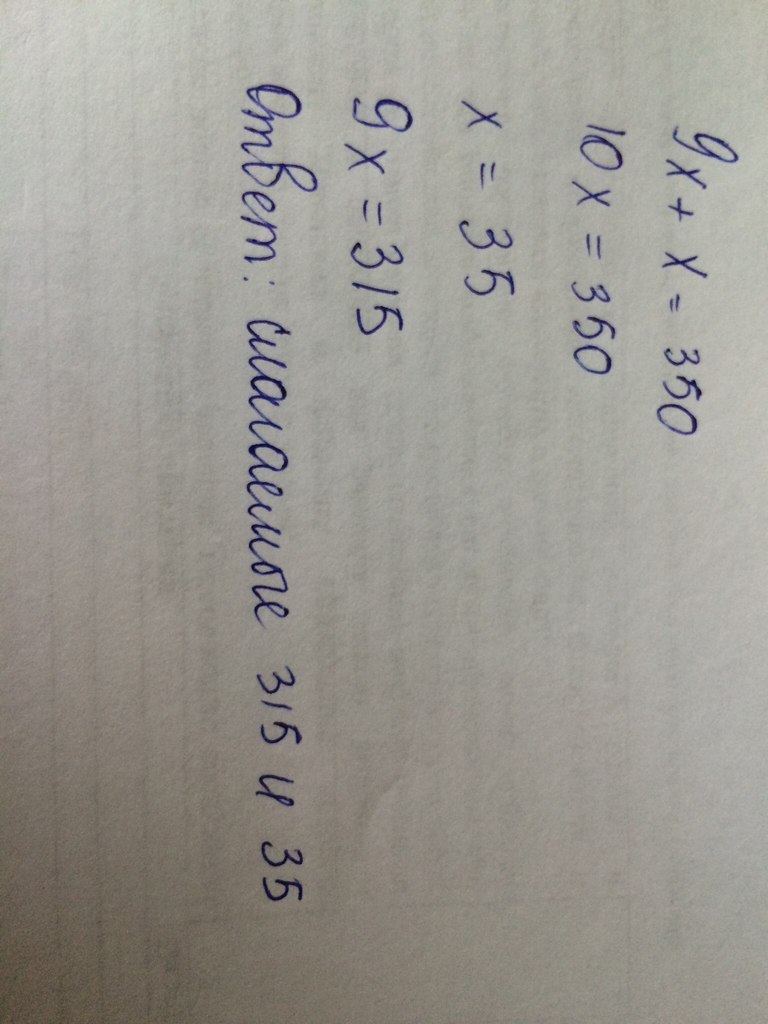 9x + x = 350
10x = 350
x = 35
9x = 315
Ответ: слагаемые 315 и 35